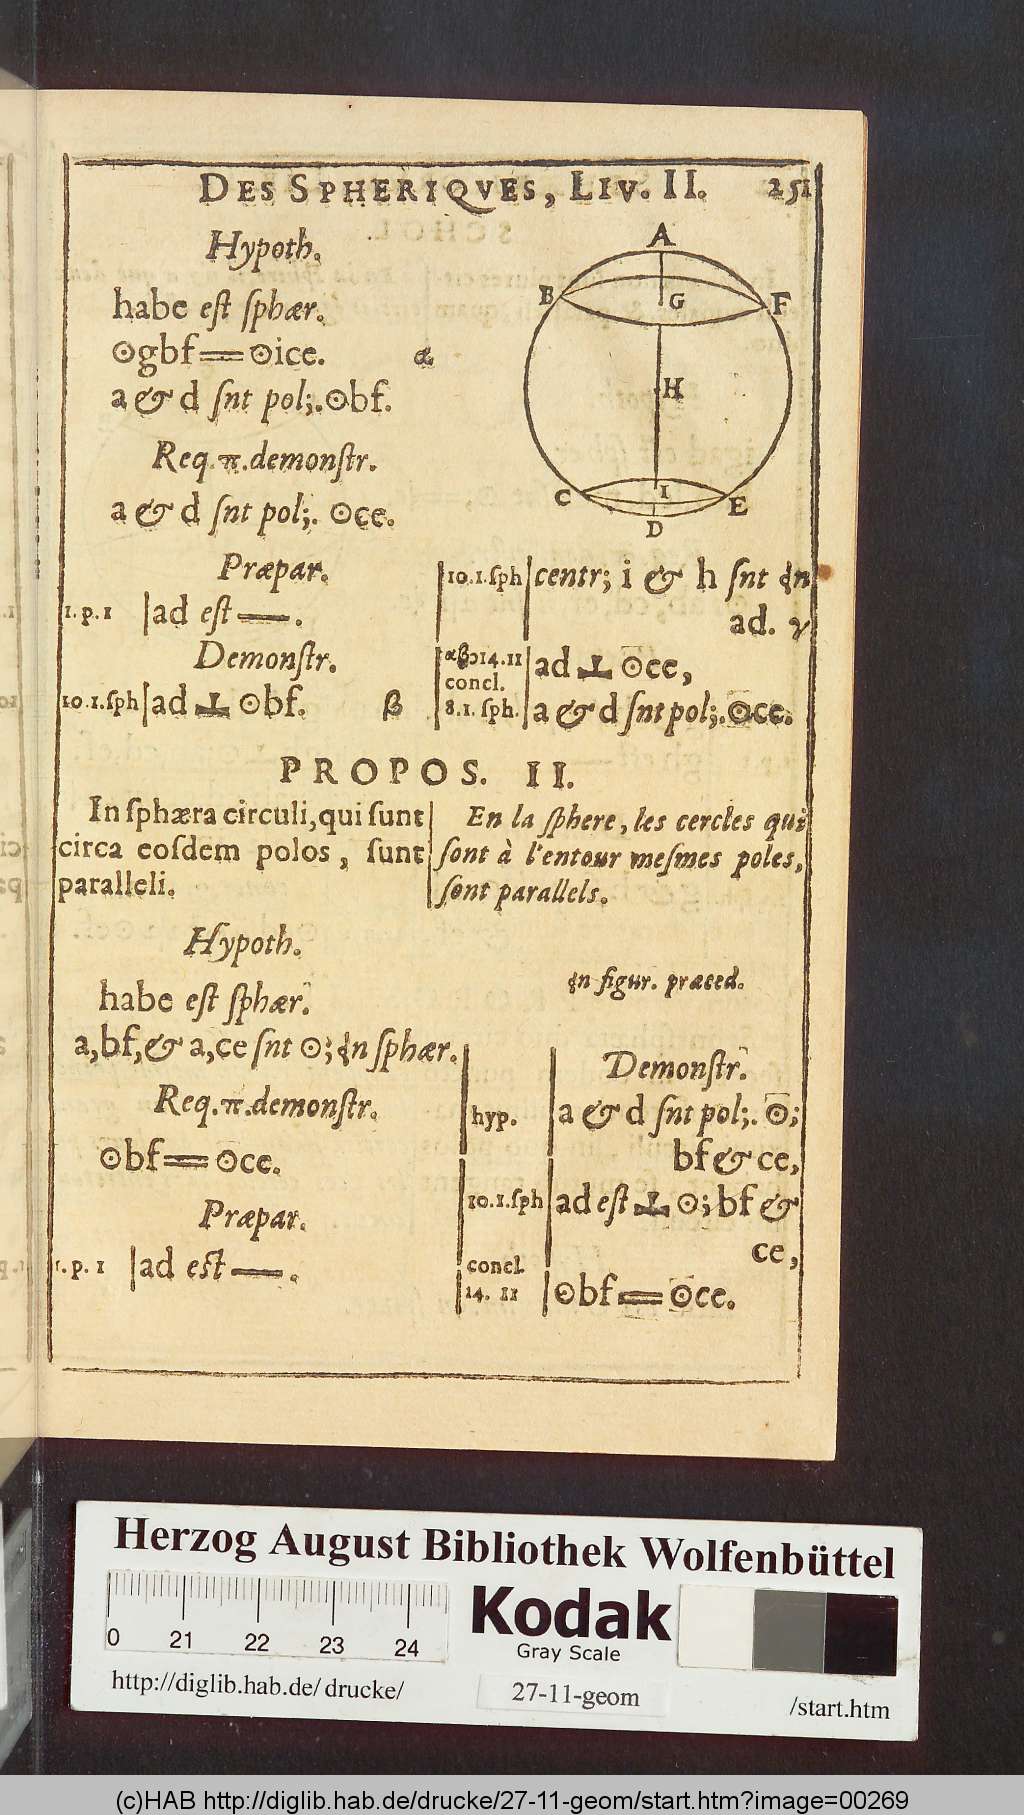 DES SPHERIQVES, LIV. II. 251
Hypoth.
habe est sphær.
⊙gbf == ⊙ice. α
a & d snt pol;. ⊙bf.
Req. π. demonstr.
a & d snt pol;. ⊙ce.
A
B G F
H
C I E
D
Præpar.
1. p. 1 | ad est —.
Demonstr.
10.1.sph | ad ⊥ ⊙bf. β
10.1.sph | centr; i & h snt dn
ad. γ
αβγ14.11 | ad ⊥ ⊙ce,
concl.
8.1. sph. | a & d snt pol;. ⊙ce.
PROPOS. II.
In sphæra circuli, qui sunt
circa eosdem polos, sunt
paralleli.
En la sphere, les cercles qui
sont à l'entour mesmes poles,
sont parallels.
Hypoth.
habe est sphær.
a,bf,& a,ce snt ⊙; dn sphær.
Req. π. demonstr.
⊙bf == ⊙ce.
Præpar.
1. p. 1 | ad est —.
dn figur. præced.
Demonstr.
hyp. | a & d snt pol;. ⊙;
bf & ce,
10.1.sph | ad est ⊥ ⊙; bf &
ce,
concl.
14. 11 | ⊙bf == ⊙ce.
Herzog August Bibliothek Wolfenbüttel
0 21 22 23 24
Kodak
Gray Scale
http://diglib.hab.de/drucke/
27-11-geom
/start.htm
(c)HAB http://diglib.hab.de/drucke/27-11-geom/start.htm?image=00269